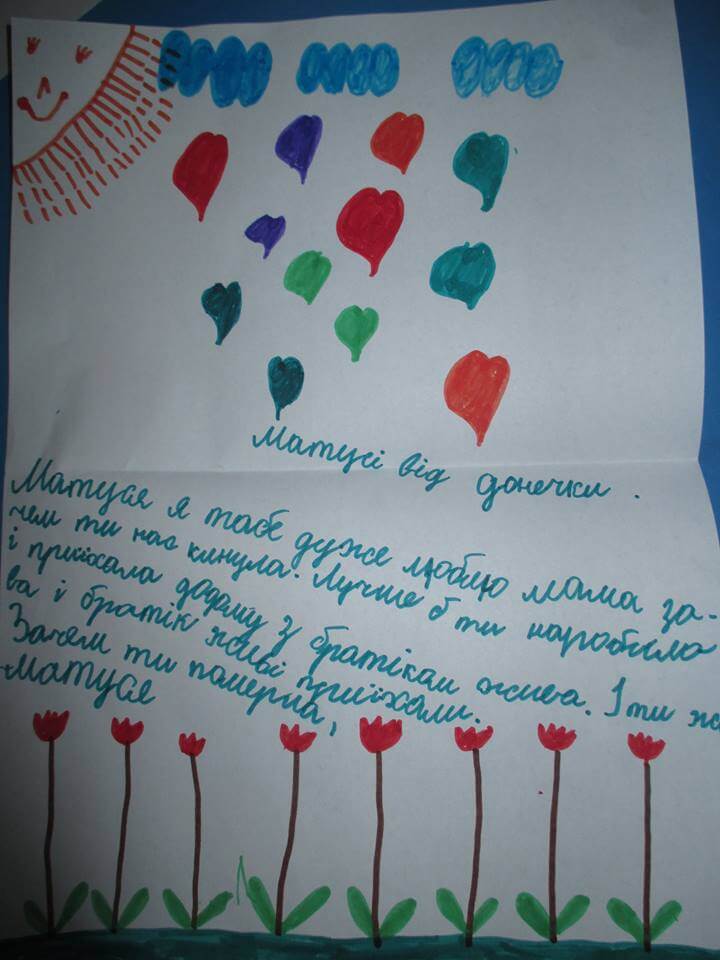 Матусі від донечки.
Матуся я табє дуже люблю мама за-
чем ти нас кинула. Лучше б ти наробила
і приїхала додому з братікам жива. І ти жи
ва і братік живі приїхали.
Зачем ти памерла,
матуся